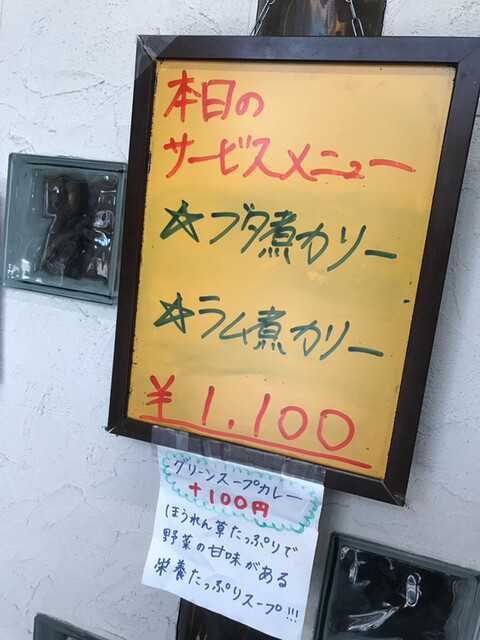 本日の
サービスメニュー
☆ブタ煮カリー
☆ラム煮カリー
¥1,100
グリーンスープカレー
+100円
ほうれん草たっぷりで
野菜の甘味がある
栄養たっぷりスープ!!!